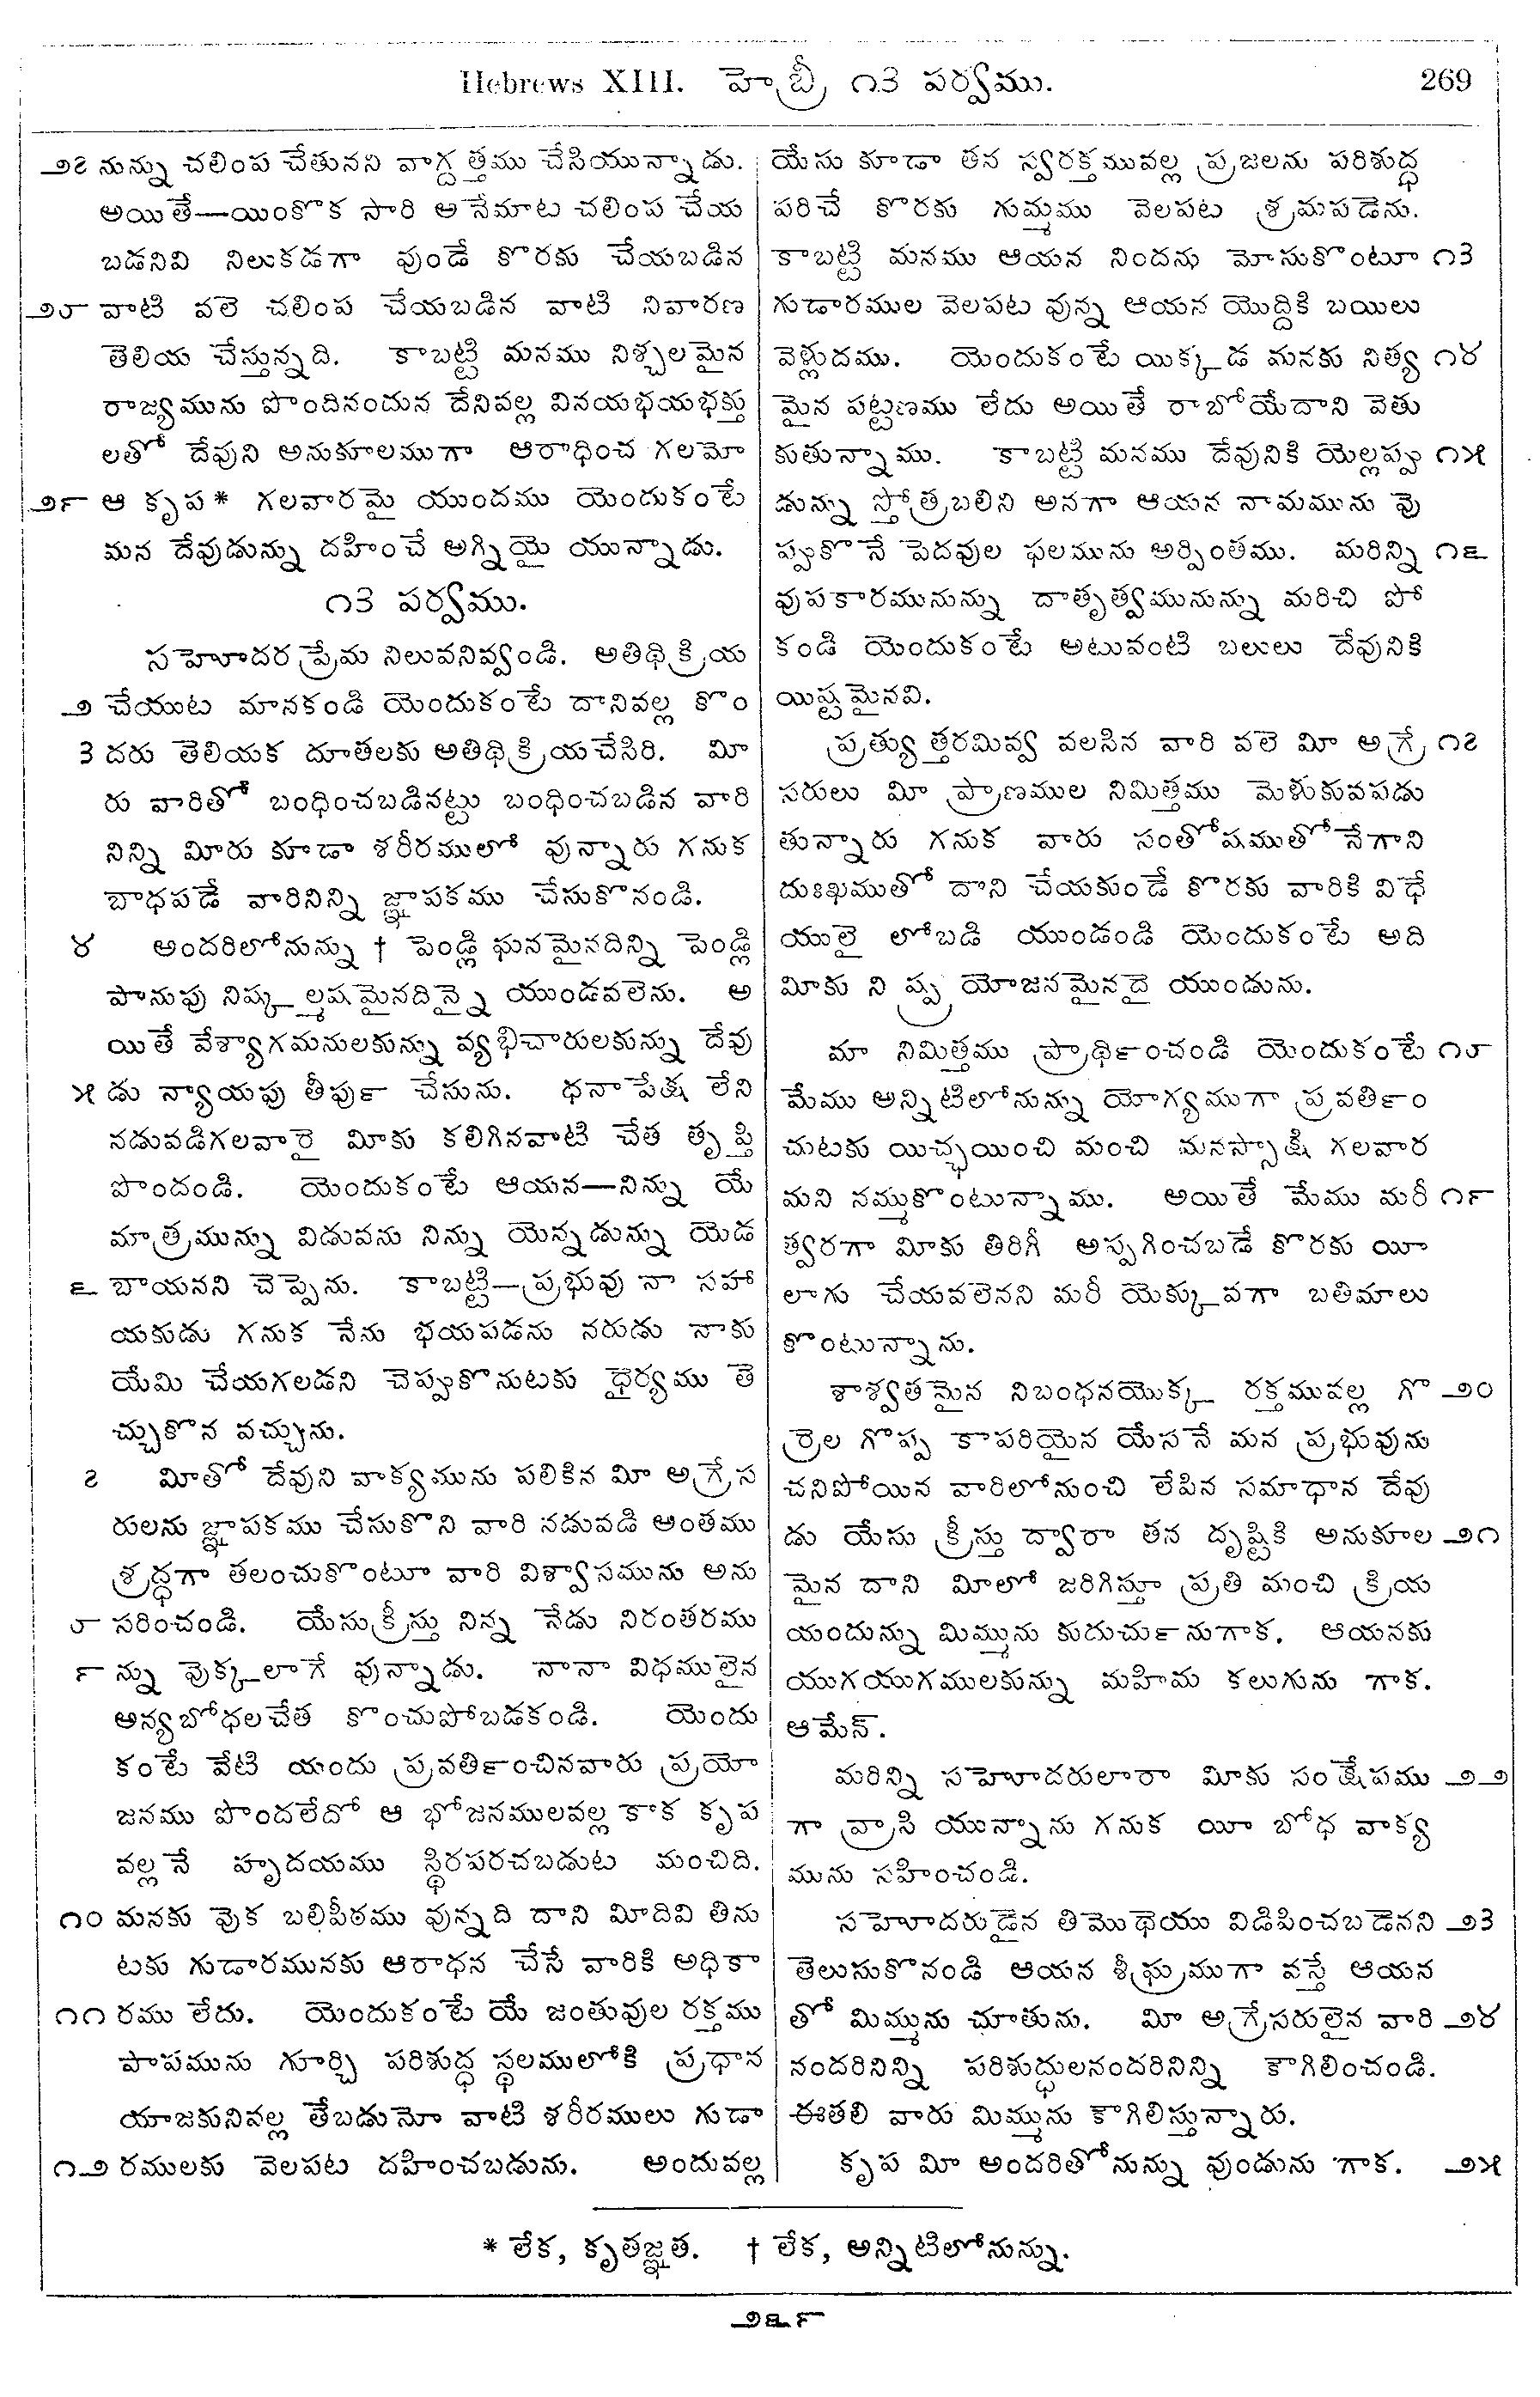 Hebrews XIII. హెబ్రీ ౧౩ పర్వము. 269
౨౭ నున్ను చలింప చేతునని వాగ్దత్తము చేసియున్నాడు.
అయితే—యింకొక సారి అనేమాట చలింప చేయ
బడనివి నిలుకడగా వుండే కొరకు చేయబడిన
౨౮ వాటి వలె చలింప చేయబడిన వాటి నివారణ
తెలియ చేస్తున్నది. కాబట్టి మనము నిశ్చలమైన
రాజ్యమును పొందినందున దేనివల్ల వినయభయభక్తు
లతో దేవుని అనుకూలముగా ఆరాధించ గలమో
౨౯ ఆ కృప* గలవారమై యుందము యెందుకంటే
మన దేవుడున్ను దహించే అగ్నియై యున్నాడు.
౧౩ పర్వము.
సహోదర ప్రేమ నిలువనివ్వండి. అతిథిక్రియ
౨ చేయుట మానకండి యెందుకంటే దానివల్ల కొం
౩ దరు తెలియక దూతలకు అతిథిక్రియచేసిరి. మీ
రు వారితో బంధించబడినట్టు బంధించబడిన వారి
నిన్ని మీరు కూడా శరీరములో వున్నారు గనుక
బాధపడే వారినిన్ని జ్ఞాపకము చేసుకొనండి.
౪ అందరిలోనున్ను † పెండ్లి ఘనమైనదిన్ని పెండ్లి
పానుపు నిష్కల్మషమైనదిన్నై యుండవలెను. అ
యితే వేశ్యాగమనులకున్ను వ్యభిచారులకున్ను దేవు
౫ డు న్యాయపు తీపు౯ చేసును. ధనాపేక్ష లేని
నడువడిగలవారై మీకు కలిగినవాటి చేత తృప్తి
పొందండి. యెందుకంటే ఆయన—నిన్ను యే
మాత్రమున్ను విడువను నిన్ను యెన్నడున్ను యెడ
౬ బాయనని చెప్పెను. కాబట్టి—ప్రభువు నా సహా
యకుడు గనుక నేను భయపడను నరుడు నాకు
యేమి చేయగలడని చెప్పుకొనుటకు ధైర్యము తె
చ్చుకొన వచ్చును.
౭ మీతో దేవుని వాక్యమును పలికిన మీ అగ్రేస
రులను జ్ఞాపకము చేసుకొని వారి నడువడి అంతము
శ్రద్ధగా తలంచుకొంటూ వారి విశ్వాసమును అను
౮ సరించండి. యేసు క్రీస్తు నిన్న నేడు నిరంతరము
౯ న్ను వుక్కలాగే వున్నాడు. నానా విధములైన
అన్యబోధలచేత కొంచుపోబడకండి. యెందు
కంటే వేటి యందు ప్రవతి౯ంచినవారు ప్రయో
జనము పొందలేదో ఆ భోజనములవల్ల కాక కృప
వల్లనే హృదయము స్థిరపరచబడుట మంచిది.
౧౦ మనకు వుక బలిపీఠము వున్నది దాని మీదివి తిను
టకు గుడారమునకు ఆరాధన చేసే వారికి అధికా
౧౧ రము లేదు. యెందుకంటే యే జంతువుల రక్తము
పాపమును గూర్చి పరిశుద్ధ స్థలములోకి ప్రధాన
యాజకునివల్ల తేబడునో వాటి శరీరములు గుడా
౧౨ రములకు వెలపట దహించబడును. అందువల్ల
యేసు కూడా తన స్వరక్తమువల్ల ప్రజలను పరిశుద్ధ
పరిచే కొరకు గుమ్మము వెలపట శ్రమపడెను.
కాబట్టి మనము ఆయన నిందను మోసుకొంటూ ౧౩
గుడారముల వెలపట వున్న ఆయన యొద్దికి బయిలు
వెళ్లుదము. యెందుకంటే యిక్కడ మనకు నిత్య ౧౪
మైన పట్టణము లేదు అయితే రాబోయేదాని వెతు
కుతున్నాము. కాబట్టి మనము దేవునికి యెల్లప్పు ౧౫
డున్ను స్తోత్రబలిని అనగా ఆయన నామమును వు
ప్పుకొనే పెదవుల ఫలమును అర్పింతము. మరిన్ని ౧౬
వుపకారమునున్ను దాతృత్వమునున్ను మరిచి పో
కండి యెందుకంటే అటువంటి బలులు దేవునికి
యిష్టమైనవి.
ప్రత్యుత్తరమివ్వ వలసిన వారి వలె మీ అగ్రే ౧౭
సరులు మీ ప్రాణముల నిమిత్తము మెళుకువపడు
తున్నారు గనుక వారు సంతోషముతోనేగాని
దుఃఖముతో దాని చేయకుండే కొరకు వారికి విధే
యులై లోబడి యుండండి యెందుకంటే అది
మీకు నిష్ప్రయోజనమైనదై యుండును.
మా నిమిత్తము ప్రాథి౯ంచండి యెందుకంటే ౧౮
మేము అన్నిటిలోనున్ను యోగ్యముగా ప్రవతి౯ం
చుటకు యిచ్ఛయించి మంచి మనస్సాక్షి గలవార
మని నమ్ముకొంటున్నాము. అయితే మేము మరీ ౧౯
త్వరగా మీకు తిరిగీ అప్పగించబడే కొరకు యీ
లాగు చేయవలెనని మరీ యెక్కువగా బతిమాలు
కొంటున్నాను.
శాశ్వతమైన నిబంధనయొక్క రక్తమువల్ల గొ ౨౦
ర్రెల గొప్ప కాపరియైన యేసనే మన ప్రభువును
చనిపోయిన వారిలోనుంచి లేపిన సమాధాన దేవు
డు యేసు క్రీస్తు ద్వారా తన దృష్టికి అనుకూల ౨౧
మైన దాని మీలో జరిగిస్తూ ప్రతి మంచి క్రియ
యందున్ను మిమ్మును కుదుచు౯నుగాక. ఆయనకు
యుగయుగములకున్ను మహిమ కలుగును గాక.
ఆమేన్.
మరిన్ని సహోదరులారా మీకు సంక్షేపము ౨౨
గా వ్రాసి యున్నాను గనుక యీ బోధ వాక్య
మును సహించండి.
సహోదరుడైన తిమొథెయు విడిపించబడెనని ౨౩
తెలుసుకొనండి ఆయన శీఘ్రముగా వస్తే ఆయన
తో మిమ్మును చూతును. మీ అగ్రేసరులైన వారి ౨౪
నందరినిన్ని పరిశుద్ధులనందరినిన్ని కౌగిలించండి.
ఈతలి వారు మిమ్మును కౌగిలిస్తున్నారు.
కృప మీ అందరితోనున్ను వుండును గాక. ౨౫
* లేక, కృతజ్ఞత. † లేక, అన్నిటిలోనున్ను.
౨౬౯